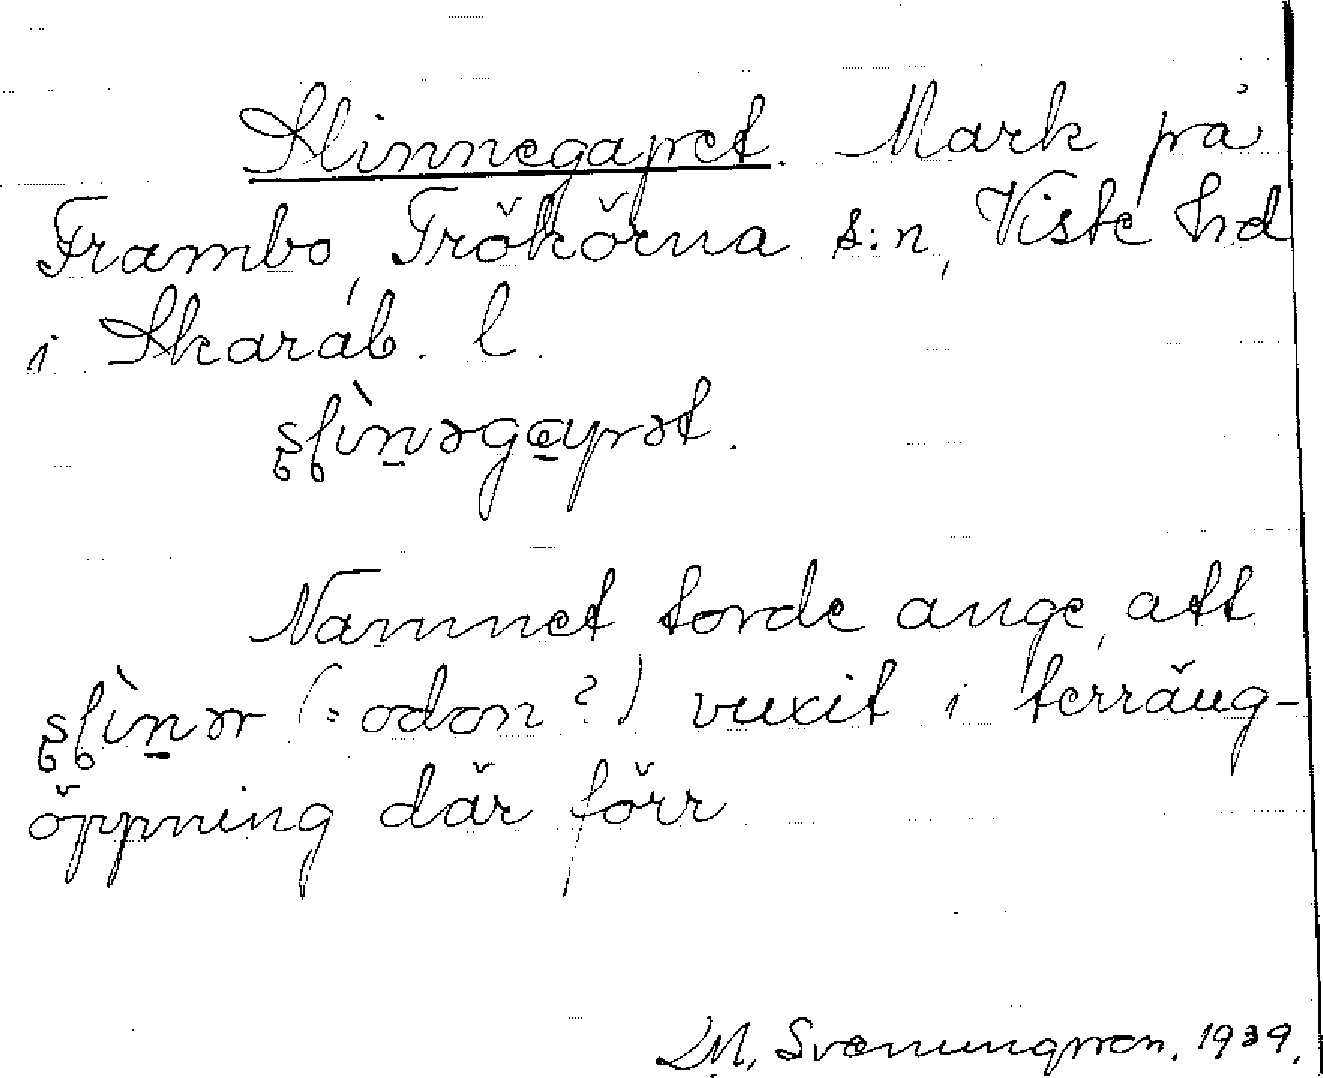 Slinnegapet. Mark på
Frambo, Trökörna s:n, Viste hd
i Skarab. l.
Namnet torde ange, att
(= odon?) vuxit i terräng-
öppning där förr
M. Svenungsson. 1939.